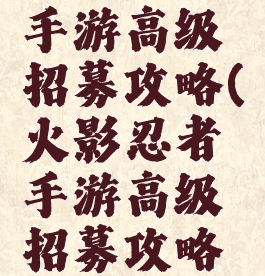 手游高级
招募攻略(
火影忍者
手游高级
招募攻略